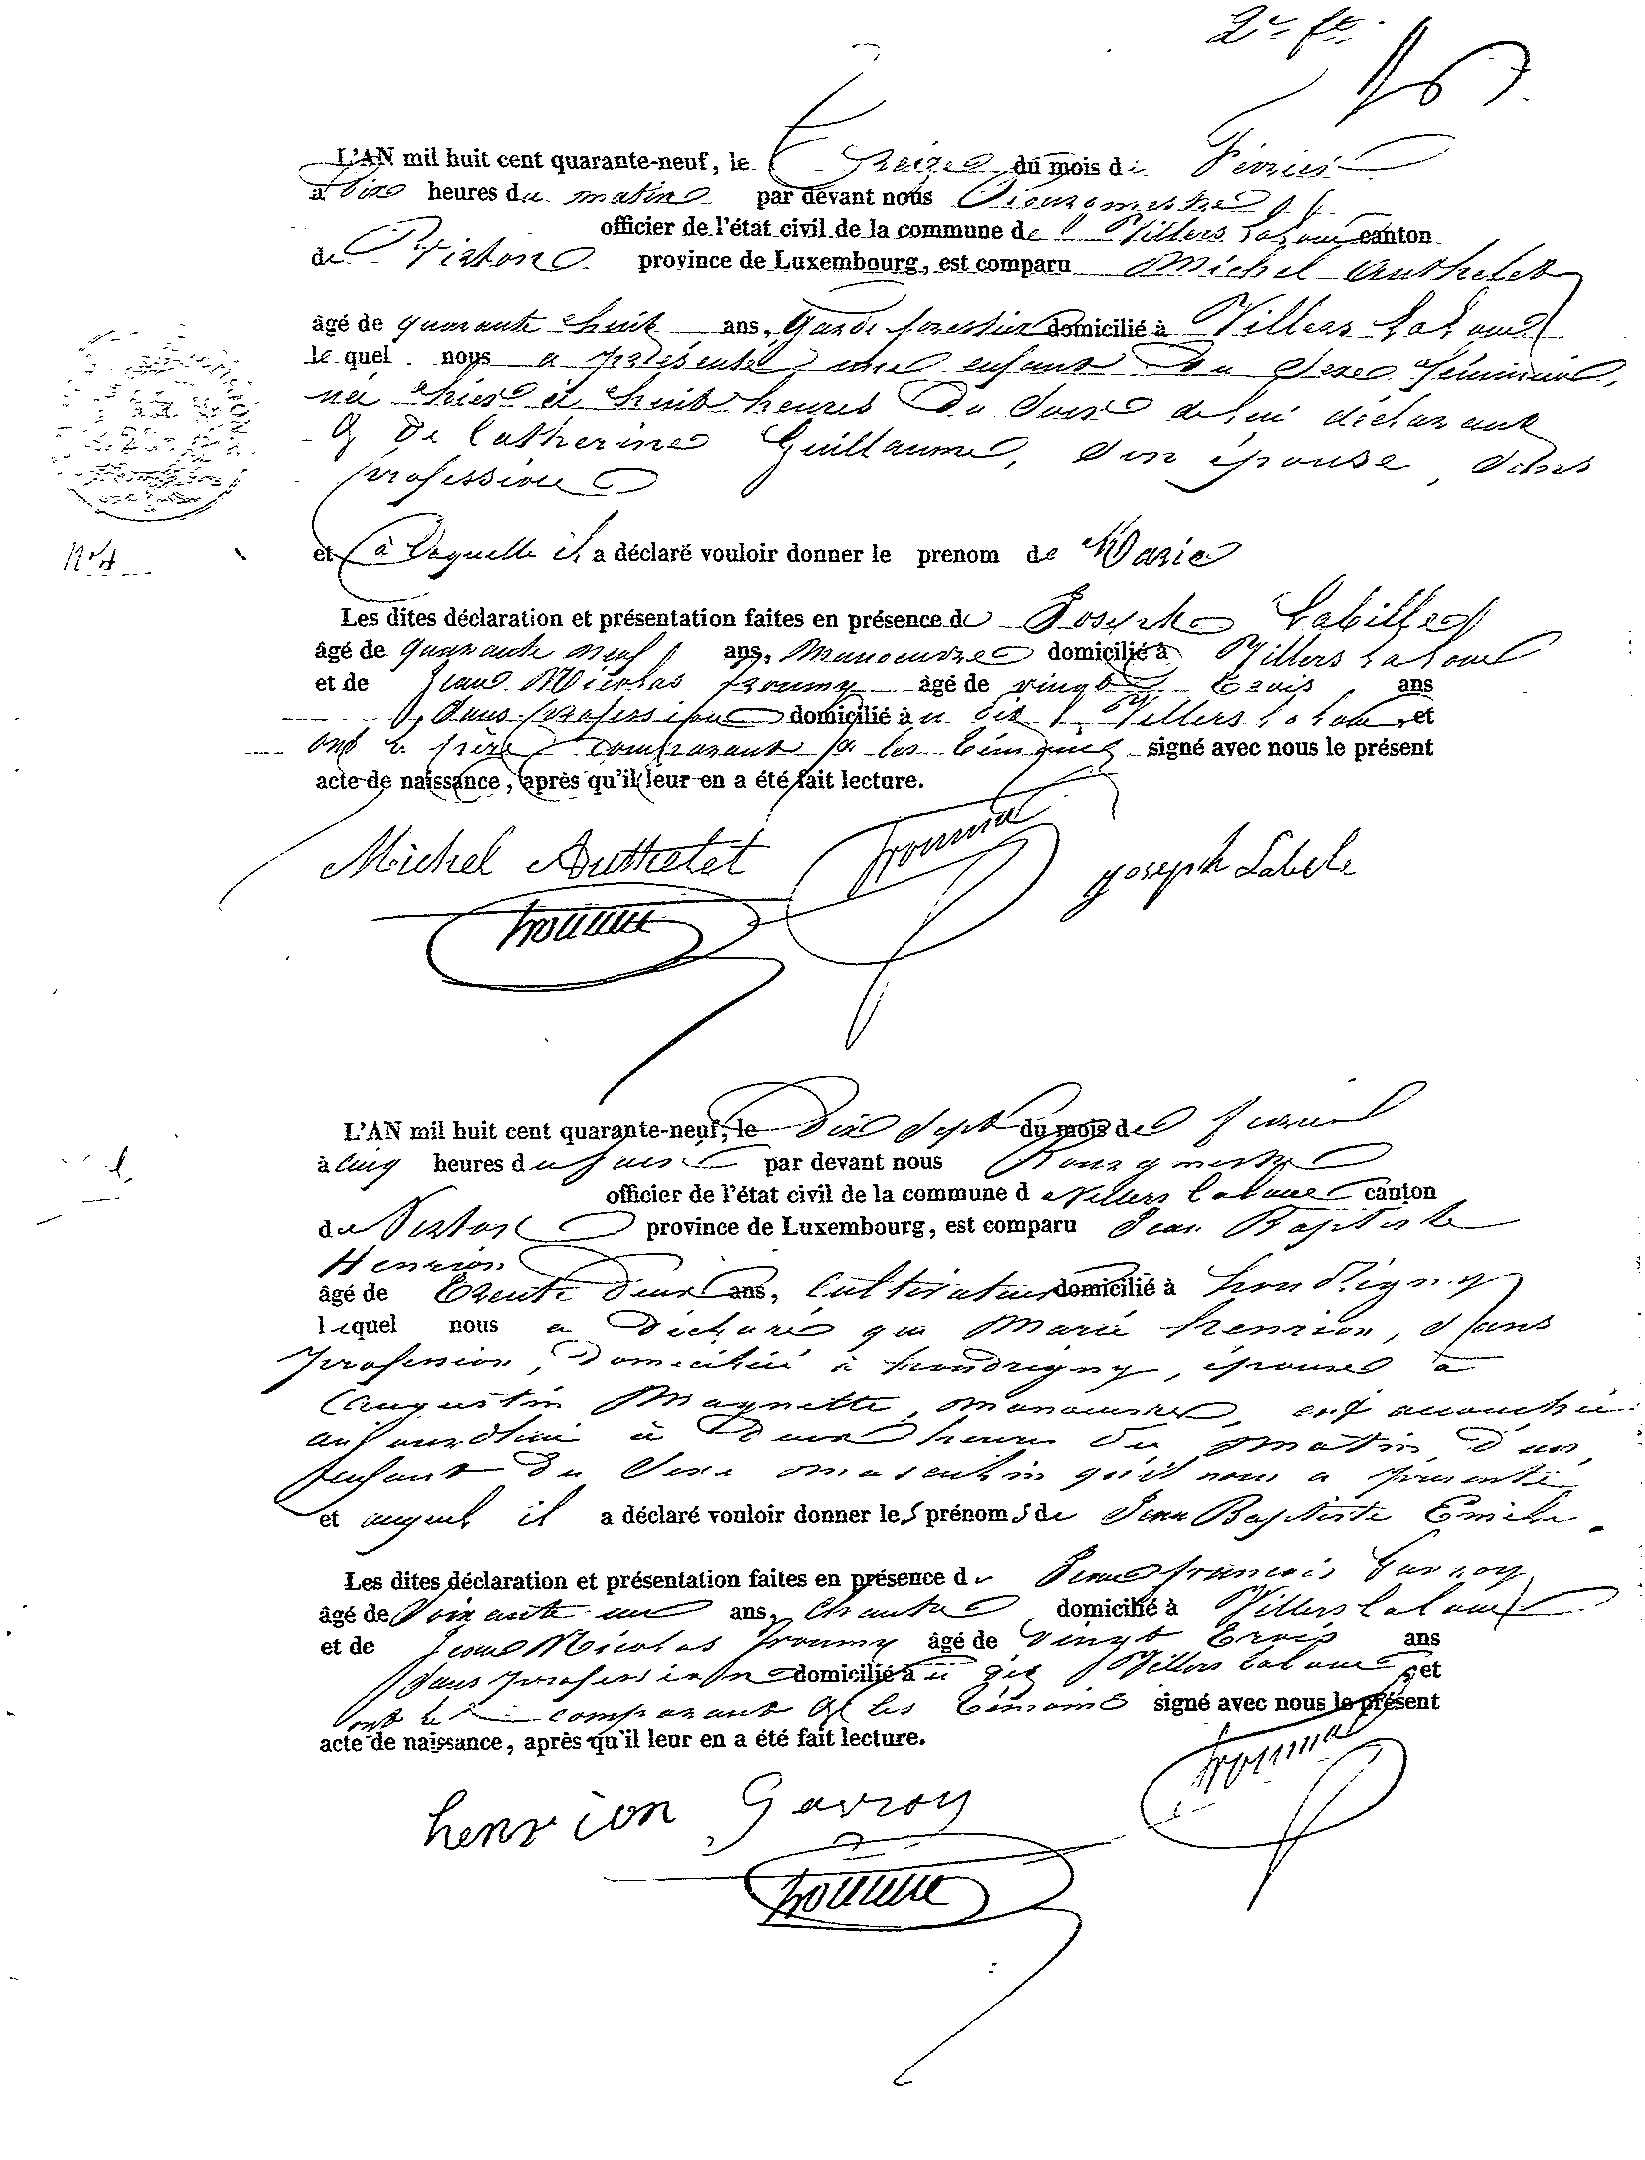 2e fe
L'AN mil huit cent quarante-neuf, le Treize du mois de Février
à Dix heures du matin par devant nous Bourgmestre
officier de l'état civil de la commune de Villers la loue canton
de Virton province de Luxembourg, est comparu Michel Authelet
âgé de quarante huit ans, Garde forestier domicilié à Villers la loue
le quel nous a présenté une enfant du Sexe féminin,
née hier à huit heures du Soir de lui déclarant
& de Catherine Guillaume, Son épouse, Sans
profession
et à laquelle il a déclaré vouloir donner le prenom de Marie
N° 4
Les dites déclaration et présentation faites en présence de Joseph Labille
âgé de quarante neuf ans, manoeuvre domicilié à Villers la loue
et de Jean Nicolas froumy âgé de vingt trois ans
Sans profession domicilié à u dit Villers la loue et
ont le père comparant & les témoins signé avec nous le présent
acte de naissance, après qu'il leur en a été fait lecture.
Michel Authelet joseph Labele
L'AN mil huit cent quarante-neuf, le Dix Sept du mois de fevrier
à cinq heures du Soir par devant nous Bourgmestre
officier de l'état civil de la commune de Villers la loue canton
de Virton province de Luxembourg, est comparu Jean Baptiste
Henrion
âgé de trente deux ans, Cultivateur domicilié à houdrigny
lequel nous a déclaré que Marie henrion, Sans
profession, domiciliée à houdrigny, épouse à
Augustin Magnette, manoeuvre, est accouchée
aujourdhui à deux heures du matin d'un
enfant du Sexe masculin qu'il nous a presenté
et auquel il a déclaré vouloir donner les prénoms de Jean Baptiste Emile.
Les dites déclaration et présentation faites en présence de Jean francois Gavroy
âgé de Soixante un ans, Chantre domicilié à Villers la loue
et de Jean Nicolas froumy âgé de vingt trois ans
Sans profession domicilié à u dit Villers la loue et
ont le comparant & les témoins signé avec nous le présent
acte de naissance, après qu'il leur en a été fait lecture.
henrion Gavroy